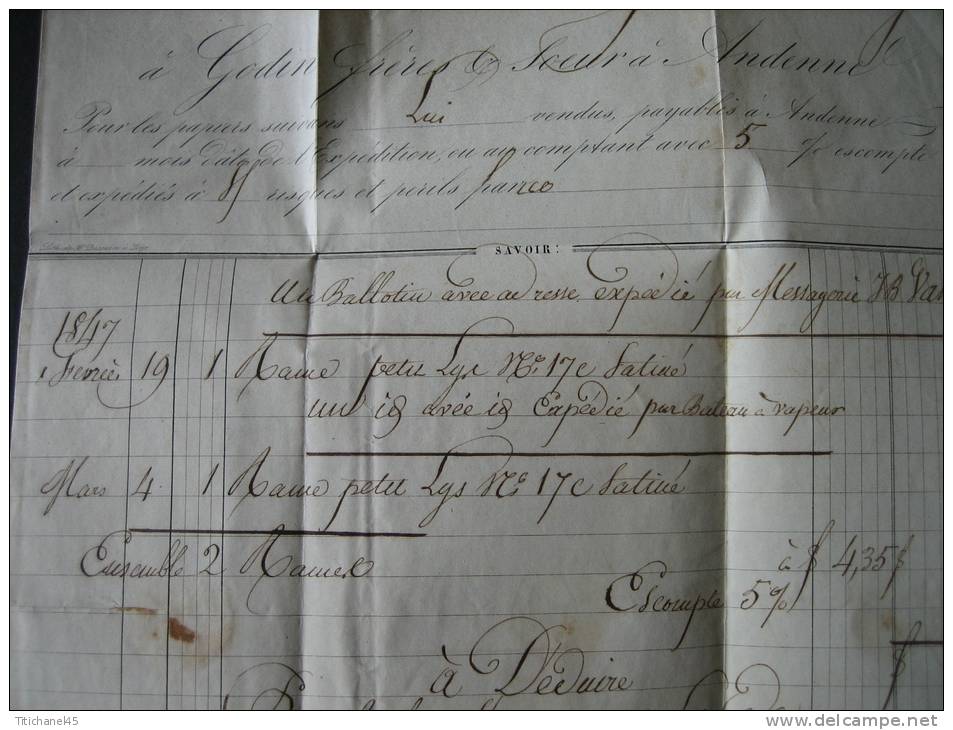 à Godin frères & Soeur à Andenne
Pour les papiers suivans Lui vendus, payables à Andenne
à mois date de l'Expédition, ou au comptant avec 5 % escompte
et expédiés à ses risques et périls franco
SAVOIR:
Un Ballotin avec adresse expédié par Messagerie JB Van
1847
Fevrier 19 1 Rame petit Lys No. 17c Satiné
un id avec id Expédié par Bateau à vapeur
Mars 4 1 Rame petit Lys No. 17c Satiné
Ensemble 2 Rames
à f 4,35 f
Escompte 5%
f
à Déduire
Ttichane45
www.delcampe.net